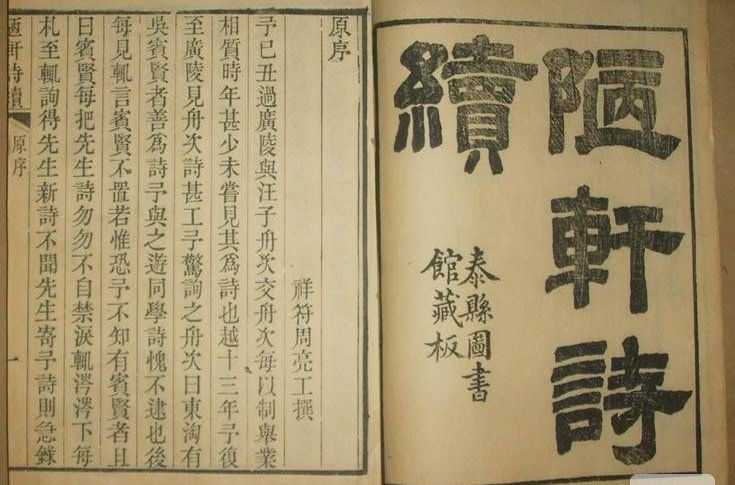 陋軒詩
續
泰縣圖書
館藏板
原序
祥符周亮工撰
予巳丑過廣陵與汪子舟次交舟次每以制舉業
相質時年甚少未嘗見其爲詩也越十三年予復
至廣陵見舟次詩甚工予驚詢之舟次曰東淘有
吳賓賢者善爲詩予與之遊同學詩愧不逮也後
每見輒言賓賢不置若惟恐予不知有賓賢者且
曰賓賢每把先生詩勿勿不自禁淚輒涔涔下每
札至輒詢得先生新詩不聞先生寄予詩則急錄
陋軒詩續
原序
一